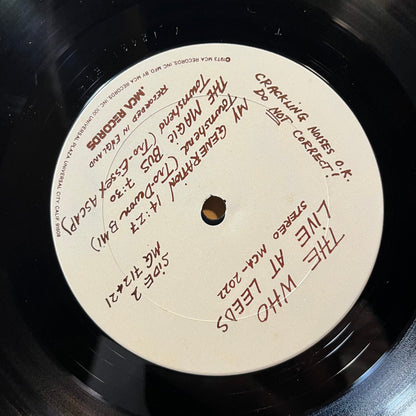 THE WHO
LIVE AT LEEDS
STEREO MCA-2022
CRACKLING NOISES O.K.
DO NOT CORRECT!
SIDE 2
MG 712421
MY GENERATION 14:27
Townshend (Tro-Devon BMI)
THE MAGIC BUS 7:30
Townshend (Tro-Essex ASCAP)
RECORDED IN ENGLAND
MCA RECORDS
©1973 MCA RECORDS, INC. MFG BY MCA RECORDS, INC. 100 UNIVERSAL PLAZA UNIVERSAL CITY. CALIF. 91608